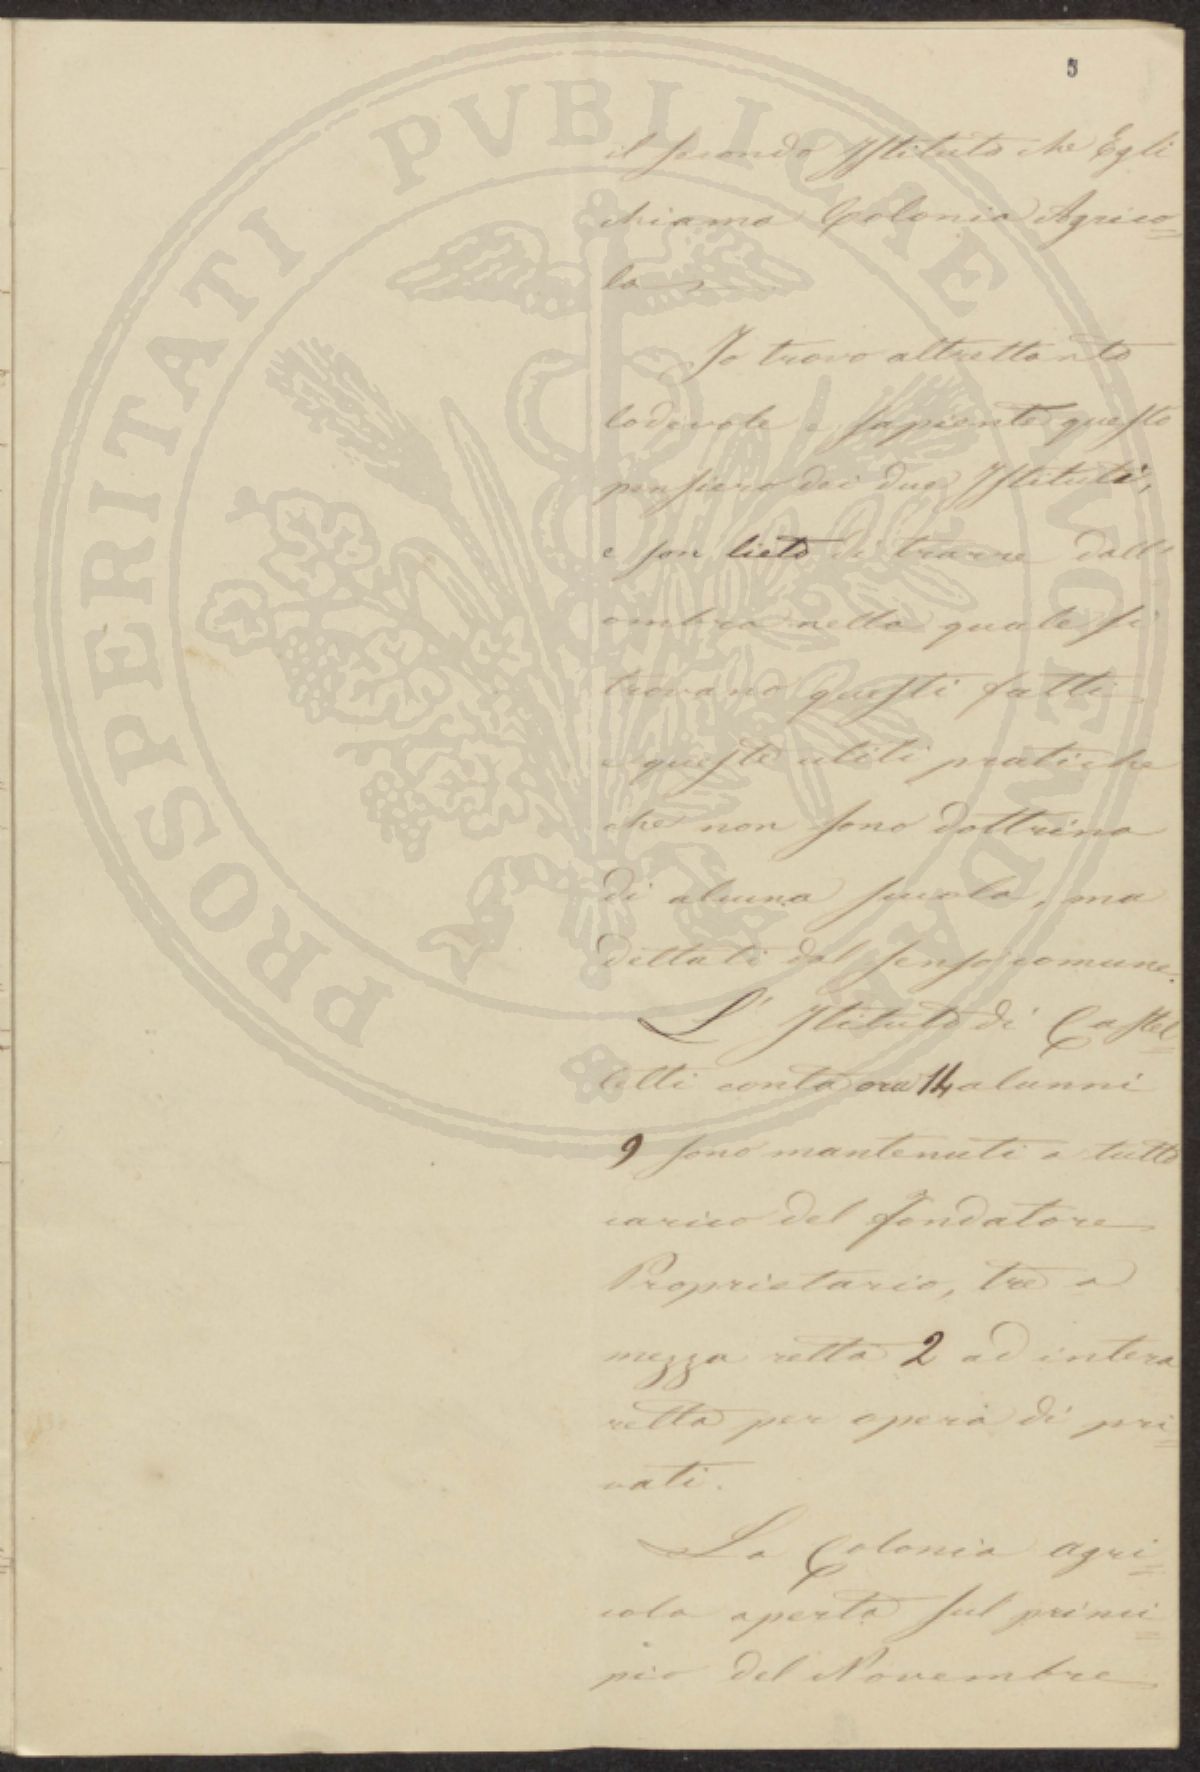 5
il secondo Istituto che Egli
chiama Colonia Agrico=
la
Io trovo altrettanto
lodevole e sapiente questo
pensiero dei due Istituti,
e son lieto di trarre dall'
ombra nella quale si
trovano questi fatti
e queste utili pratiche
che non sono dottrina
di alcuna scuola, ma
dettati dal senso comune.
L' Istituto di Castel=
letti conta ora 14 alunni
9 sono mantenuti a tutto
carico del fondatore
Proprietario, tre a
mezza retta 2 ad intera
retta per opera di pri=
vati.
La Colonia agri=
cola aperta sul princi=
pio del Novembre
PROSPERITATI PVBLICAE AVGENDAE